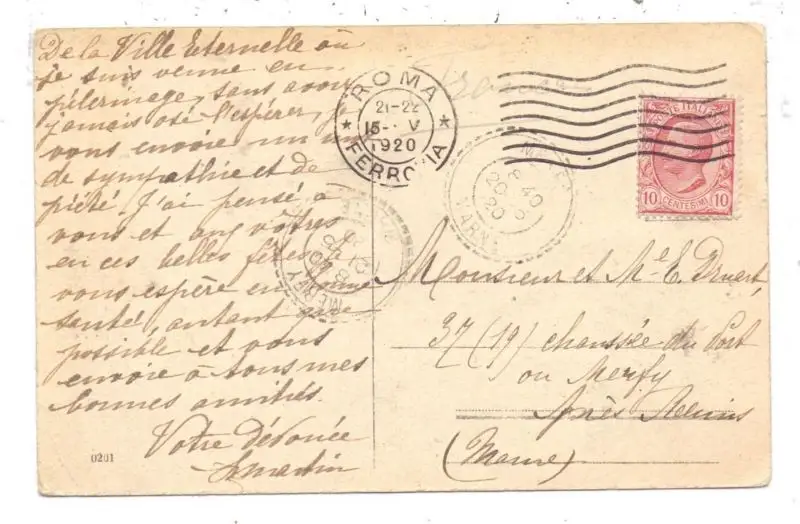 De la Ville Eternelle où
je suis venue en
pélerinage, sans avoir
jamais osé l'espérer, je
vous envoie un
de sympathie et de
piété. J'ai pensé à
vous et aux vôtres
en ces belles fêtes. Je
vous espère en bonne
santé, autant que
possible et vous
envoie à tous mes
bonnes amitiés.
Votre dévouée
Martin
0201
ROMA
21-22
15 V
1920
FERROVIA
POSTE ITALIANE
10 CENTESIMI 10
MARNE
MERFY
Monsieur et Me E. Druart,
37 (19) chaussée du Port
ou Merfy
Près Reims
(Marne)